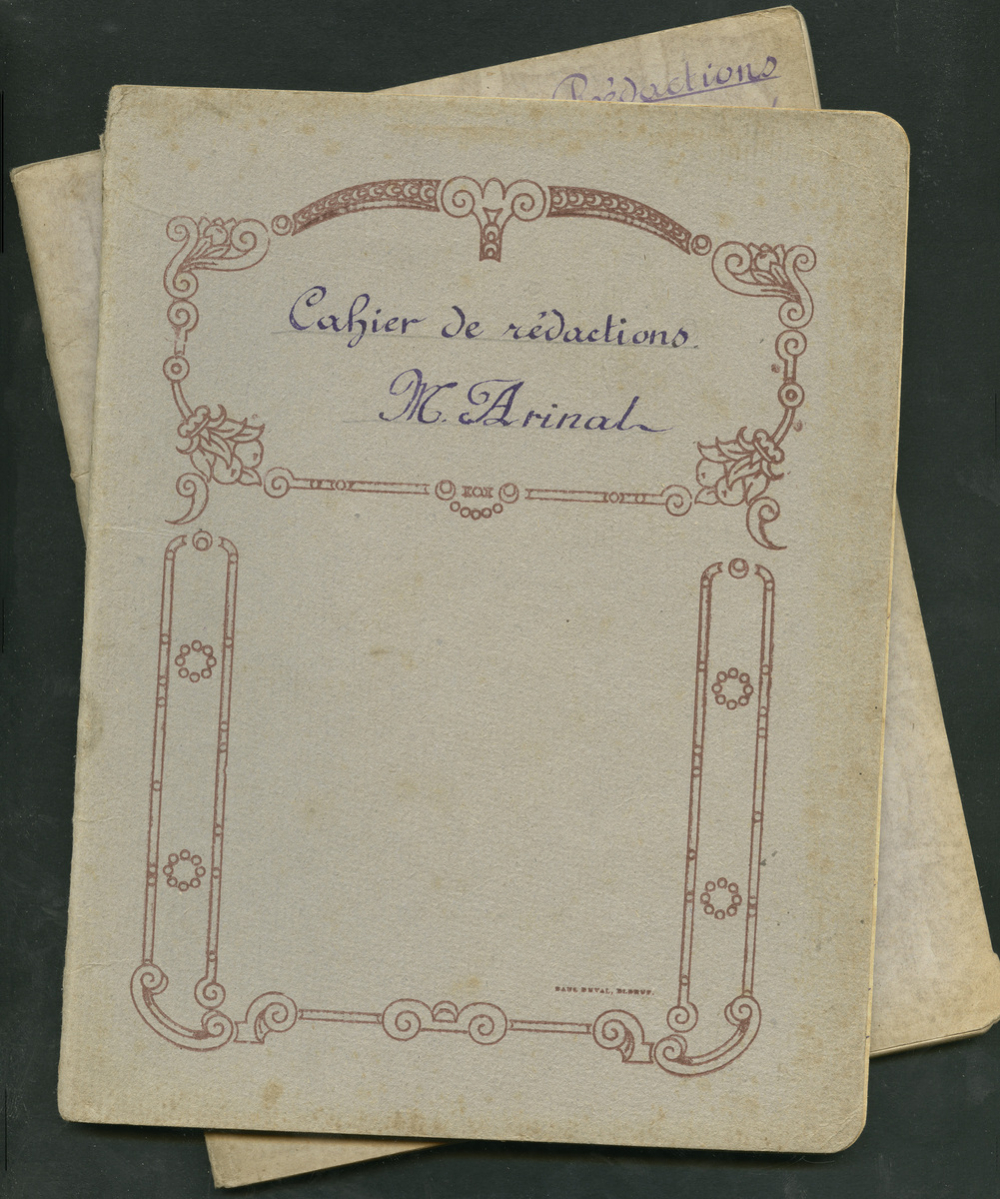 Rédactions
Cahier de rédactions.
M. Arinal
PAUL DUVAL, ELBEUF.